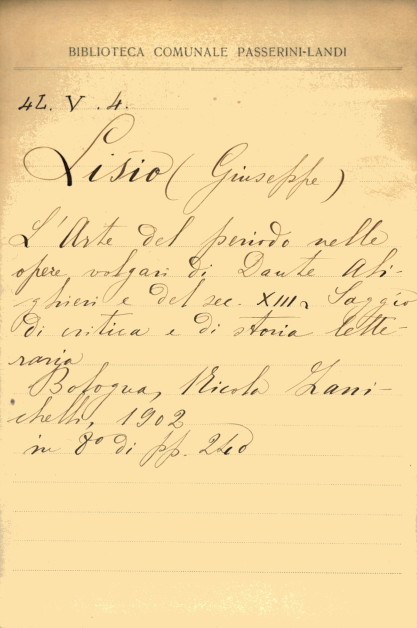 BIBLIOTECA COMUNALE PASSERINI-LANDI
4L. V. 4.
Lisio (Giuseppe)
L'Arte del periodo nelle
opere volgari di Dante Ali-
ghieri e del sec. XIII. Saggio
di critica e di storia lette-
raria
Bologna, Nicola Zani-
chelli, 1902
in 8º di pp. 240